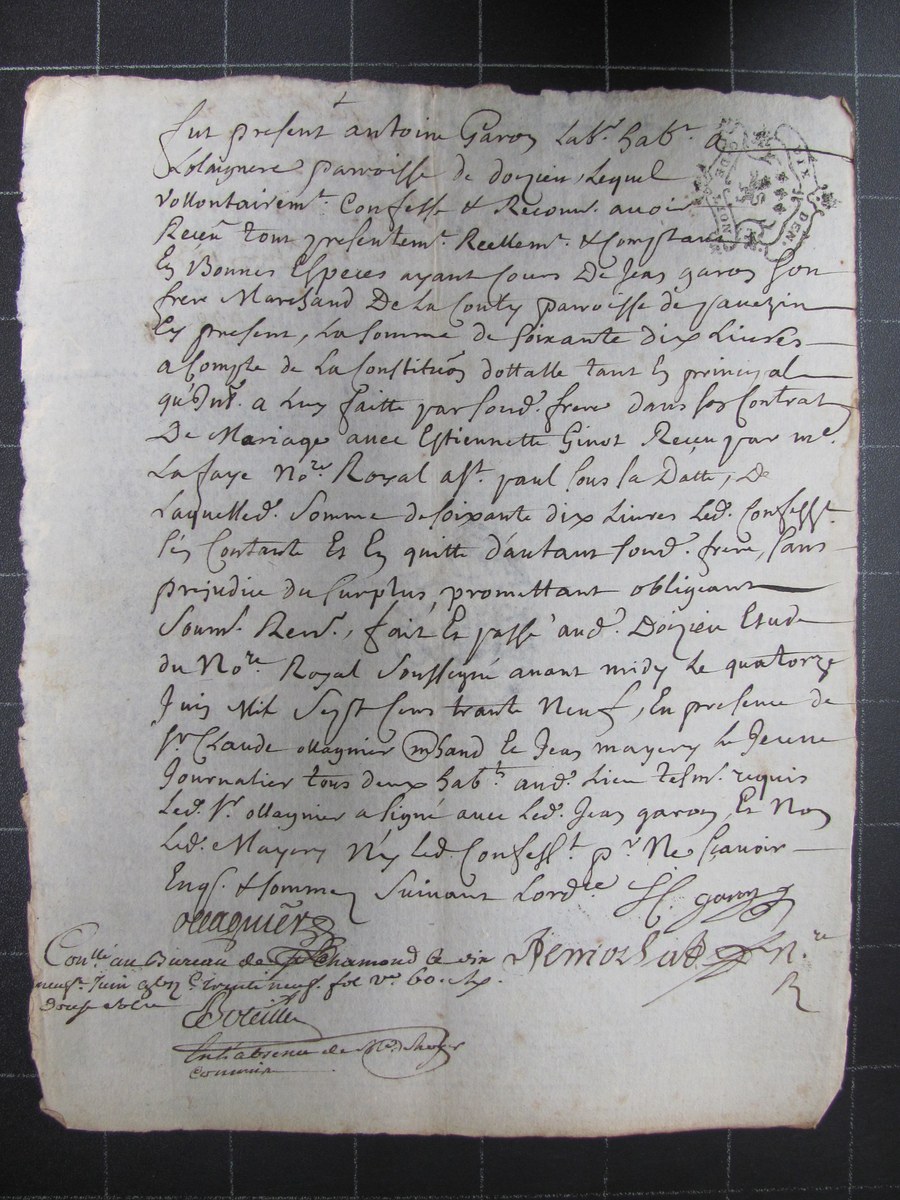 fut present antoine Garon Lab.r hab.t a
parroisse de doizieu, Lequel
vollontairem.t Confesse & Reconn. avoir
Receu tout presentem.t Reellem.t & Comptant
En Bonnes Especes ayant Cours De Jean garon son
frere Marchand De La Conty parroisse de pavezin
Ey present, La somme de soixante dix Livres
a Compte de La Constitution dottalle tant En principal
qu'Int. a Luy faitte par sond. frere dans son Contrat
De Mariage avec Estiennette Ginot Receu par me.
Lafaye No.re Royal a St. paul sous sa Datte, De
Laquelled. Somme de soixante dix Livres Led. Confess.t
s'en Contante Et En quitte d'autant sond. frere, sans
prejudice du surplus, promettant obligeant
Soum. Ren., fait Et passé aud. Doizieu Etude
du No.re Royal Soussigné avant midy Le quatorze
Juin Mil Sept Cens trante Neuf, En presence de
Sr. Claude ollagnier mhand Et Jean mayery le Jeune
Journalier tous deux hab.ts aud. Lieu tesm. requis
Led. Sr. ollagnier a signé avec Led. Jean garon, Et Non
Led. Mayery N'y Led. Confess.t p.r Ne sçavoir
Enq. & somme suivant Lord.re J garon
ollagnier
Conll.é au Bureau de St Chamond Le dix
neuf Juin trente neuf. fol v.o 60.
douze sols
En l'absence de Mr.
commis
N.re
R
SIX DEN.